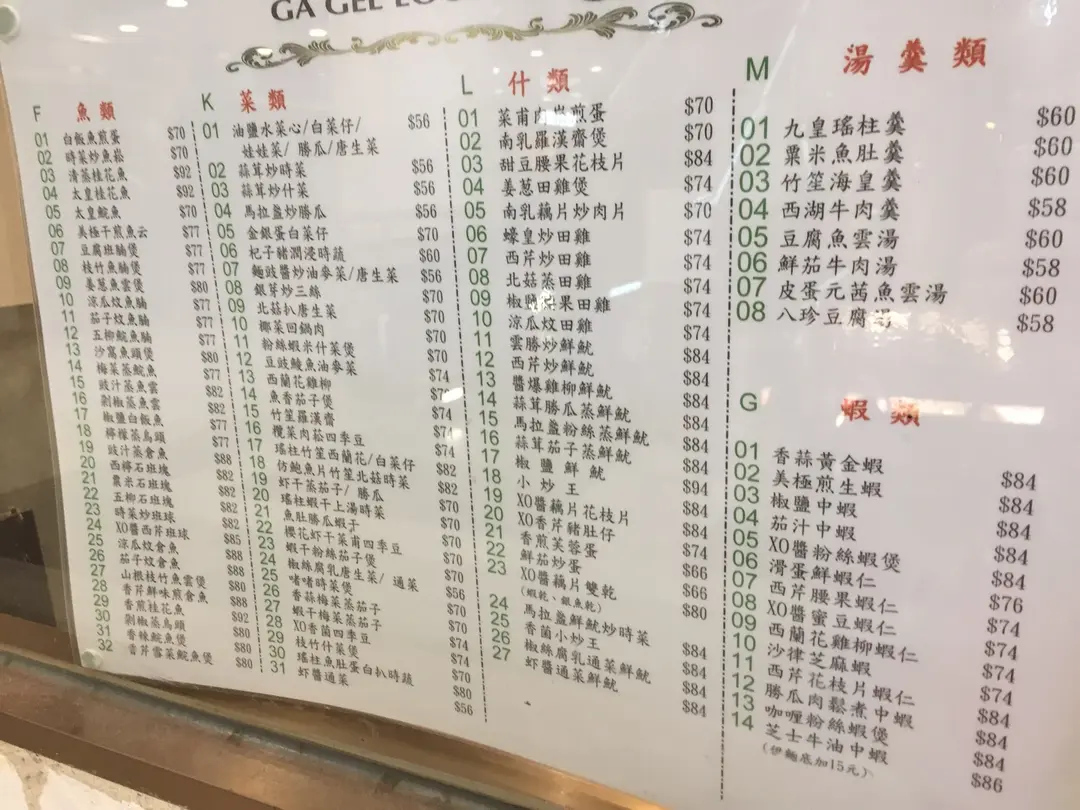 GA GEE
F 魚類
01 白飯魚煎蛋 $70
02 時菜炒魚崧 $70
03 清蒸桂花魚 $92
04 太皇桂花魚 $92
05 太皇鯇魚 $70
06 美極干煎魚云 $77
07 豆腐班腩煲 $77
08 枝竹魚腩煲 $77
09 姜蔥魚雲煲 $80
10 涼瓜炆魚腩 $77
11 茄子炆魚腩 $77
12 五柳鯇魚腩 $77
13 沙窩魚頭煲 $80
14 梅菜蒸鯇魚 $77
15 豉汁蒸魚雲 $82
16 剁椒蒸魚雲 $82
17 椒鹽白飯魚 $77
18 檸檬蒸烏頭 $77
19 豉汁蒸倉魚 $88
20 西檸石班塊 $82
21 粟米石班塊 $82
22 五柳石班塊 $82
23 時菜炒班球 $85
24 XO醬西芹班球 $85
25 涼瓜炆倉魚 $88
26 茄子炆倉魚 $88
27 山根枝竹魚雲煲 $80
28 香芹鮮味煎倉魚 $88
29 香煎桂花魚 $92
30 剁椒蒸烏頭 $80
31 香辣鯇魚煲 $80
32 香芹雪菜鯇魚煲 $80
K 菜類
01 油鹽水菜心/白菜仔/ $56
娃娃菜/ 勝瓜/唐生菜
02 蒜茸炒時菜 $56
03 蒜茸炒什菜 $56
04 馬拉盞炒勝瓜 $56
05 金銀蛋白菜仔 $70
06 杞子豬潤浸時蔬 $60
07 麵豉醬炒油麥菜/唐生菜 $56
08 銀芽炒三絲 $70
09 北菇扒唐生菜 $70
10 椰菜回鍋肉 $70
11 粉絲蝦米什菜煲 $70
12 豆豉鯪魚油麥菜 $74
13 西蘭花雞柳
14 魚香茄子煲
15 竹笙羅漢齋
16 欖菜肉菘四季豆
17 瑤柱竹笙西蘭花/白菜仔
18 仿鮑魚片竹笙北菇時菜
19 虾干蒸茄子/ 勝瓜
20 瑤柱蝦干上湯時菜
21 魚肚勝瓜蝦子
22 櫻花虾干菜甫四季豆
23 蝦干粉絲茄子煲
24 椒絲腐乳唐生菜/ 通菜
25 啫啫時菜煲
26 香蒜梅菜蒸茄子
27 蝦干梅菜蒸茄子
28 XO香菌四季豆
29 枝竹什菜煲
30 瑤柱魚肚蛋白扒時蔬 $80
31 虾醬通菜 $56
L 什類
01 菜甫肉崧煎蛋 $70
02 南乳羅漢齋煲 $70
03 甜豆腰果花枝片 $84
04 姜蔥田雞煲 $74
05 南乳藕片炒肉片 $70
06 蠔皇炒田雞 $74
07 西芹炒田雞 $74
08 北菇蒸田雞 $74
09 椒鹽 果田雞 $74
10 涼瓜炆田雞 $74
11 雲勝炒鮮魷 $84
12 西芹炒鮮魷 $84
13 醬爆雞柳鮮魷 $84
14 蒜茸勝瓜蒸鮮魷 $84
15 馬拉盞粉絲蒸鮮魷 $84
16 蒜茸茄子蒸鮮魷 $84
17 椒鹽鮮魷 $84
18 小炒王 $94
19 XO醬藕片花枝片 $84
20 XO香芹豬肚仔 $74
21 香煎芙蓉蛋 $66
22 鮮茄炒蛋 $66
23 XO醬藕片雙乾 $80
(蝦乾、銀魚乾)
24 馬拉盞鮮魷炒時菜 $84
25 香菌小炒王 $84
26 椒絲腐乳通菜鮮魷 $84
27 虾醬通菜鮮魷 $84
M 湯羹類
01 九皇瑤柱羹 $60
02 粟米魚肚羹 $60
03 竹笙海皇羹 $60
04 西湖牛肉羹 $58
05 豆腐魚雲湯 $60
06 鮮茄牛肉湯 $58
07 皮蛋元茜魚雲湯 $60
08 八珍豆腐湯 $58
G 蝦類
01 香蒜黃金蝦 $84
02 美極煎生蝦 $84
03 椒鹽中蝦 $84
04 茄汁中蝦 $84
05 XO醬粉絲蝦煲 $84
06 滑蛋鮮蝦仁 $76
07 西芹腰果蝦仁 $74
08 XO醬蜜豆蝦仁 $74
09 西蘭花雞柳蝦仁 $74
10 沙律芝麻蝦 $84
11 西芹花枝片蝦仁 $84
12 勝瓜肉鬆煮中蝦 $84
13 咖喱粉絲蝦煲
14 芝士牛油中蝦 $86
(伊麵底加15元)